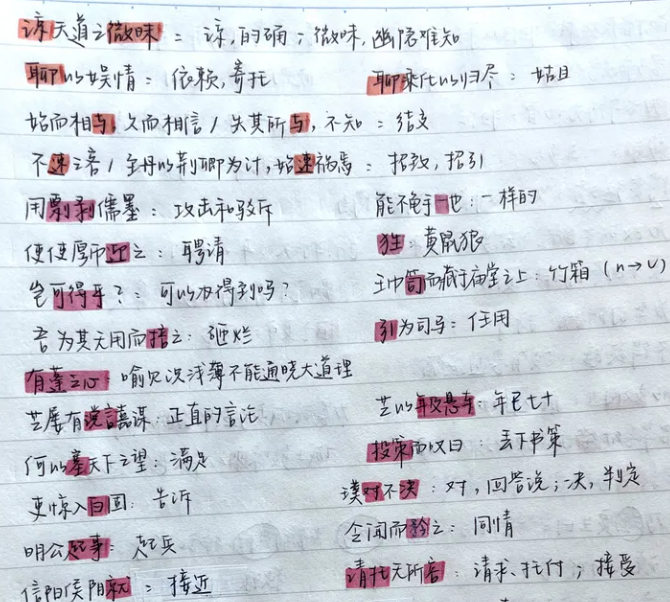 谅天道之微昧：谅，的确；微昧，幽隐难知
聊以娱情：依赖，寄托 聊乘化以归尽：姑且
始而相与，久而相信/失其所与，不知：结交
不速之客/至丹以荆卿为计，始速祸焉：招致，招引
用剽剥儒墨：攻击和驳斥 能不龟手一也：一样的
使使厚币迎之：聘请 狌 黄鼠狼
岂可得乎？：可以办得到吗？ 王巾笥而藏于庙堂之上：竹箱（n→v）
吾为其无用而掊之：砸烂 引为司马：任用
有蓬之心：喻见识浅薄不能通晓大道理
芝屡有谠言嘉谋：正直的言论 芝以年及悬车：年已七十
何以塞天下之望：满足 投策而叹曰：丢下书策
吏惊入白圆：告诉 璞对不决：对，回答说；决，判定
明公起事：起兵 念闻而矜之：同情
信阳侯阴就：接近 请托无所容：请求、托付；接受